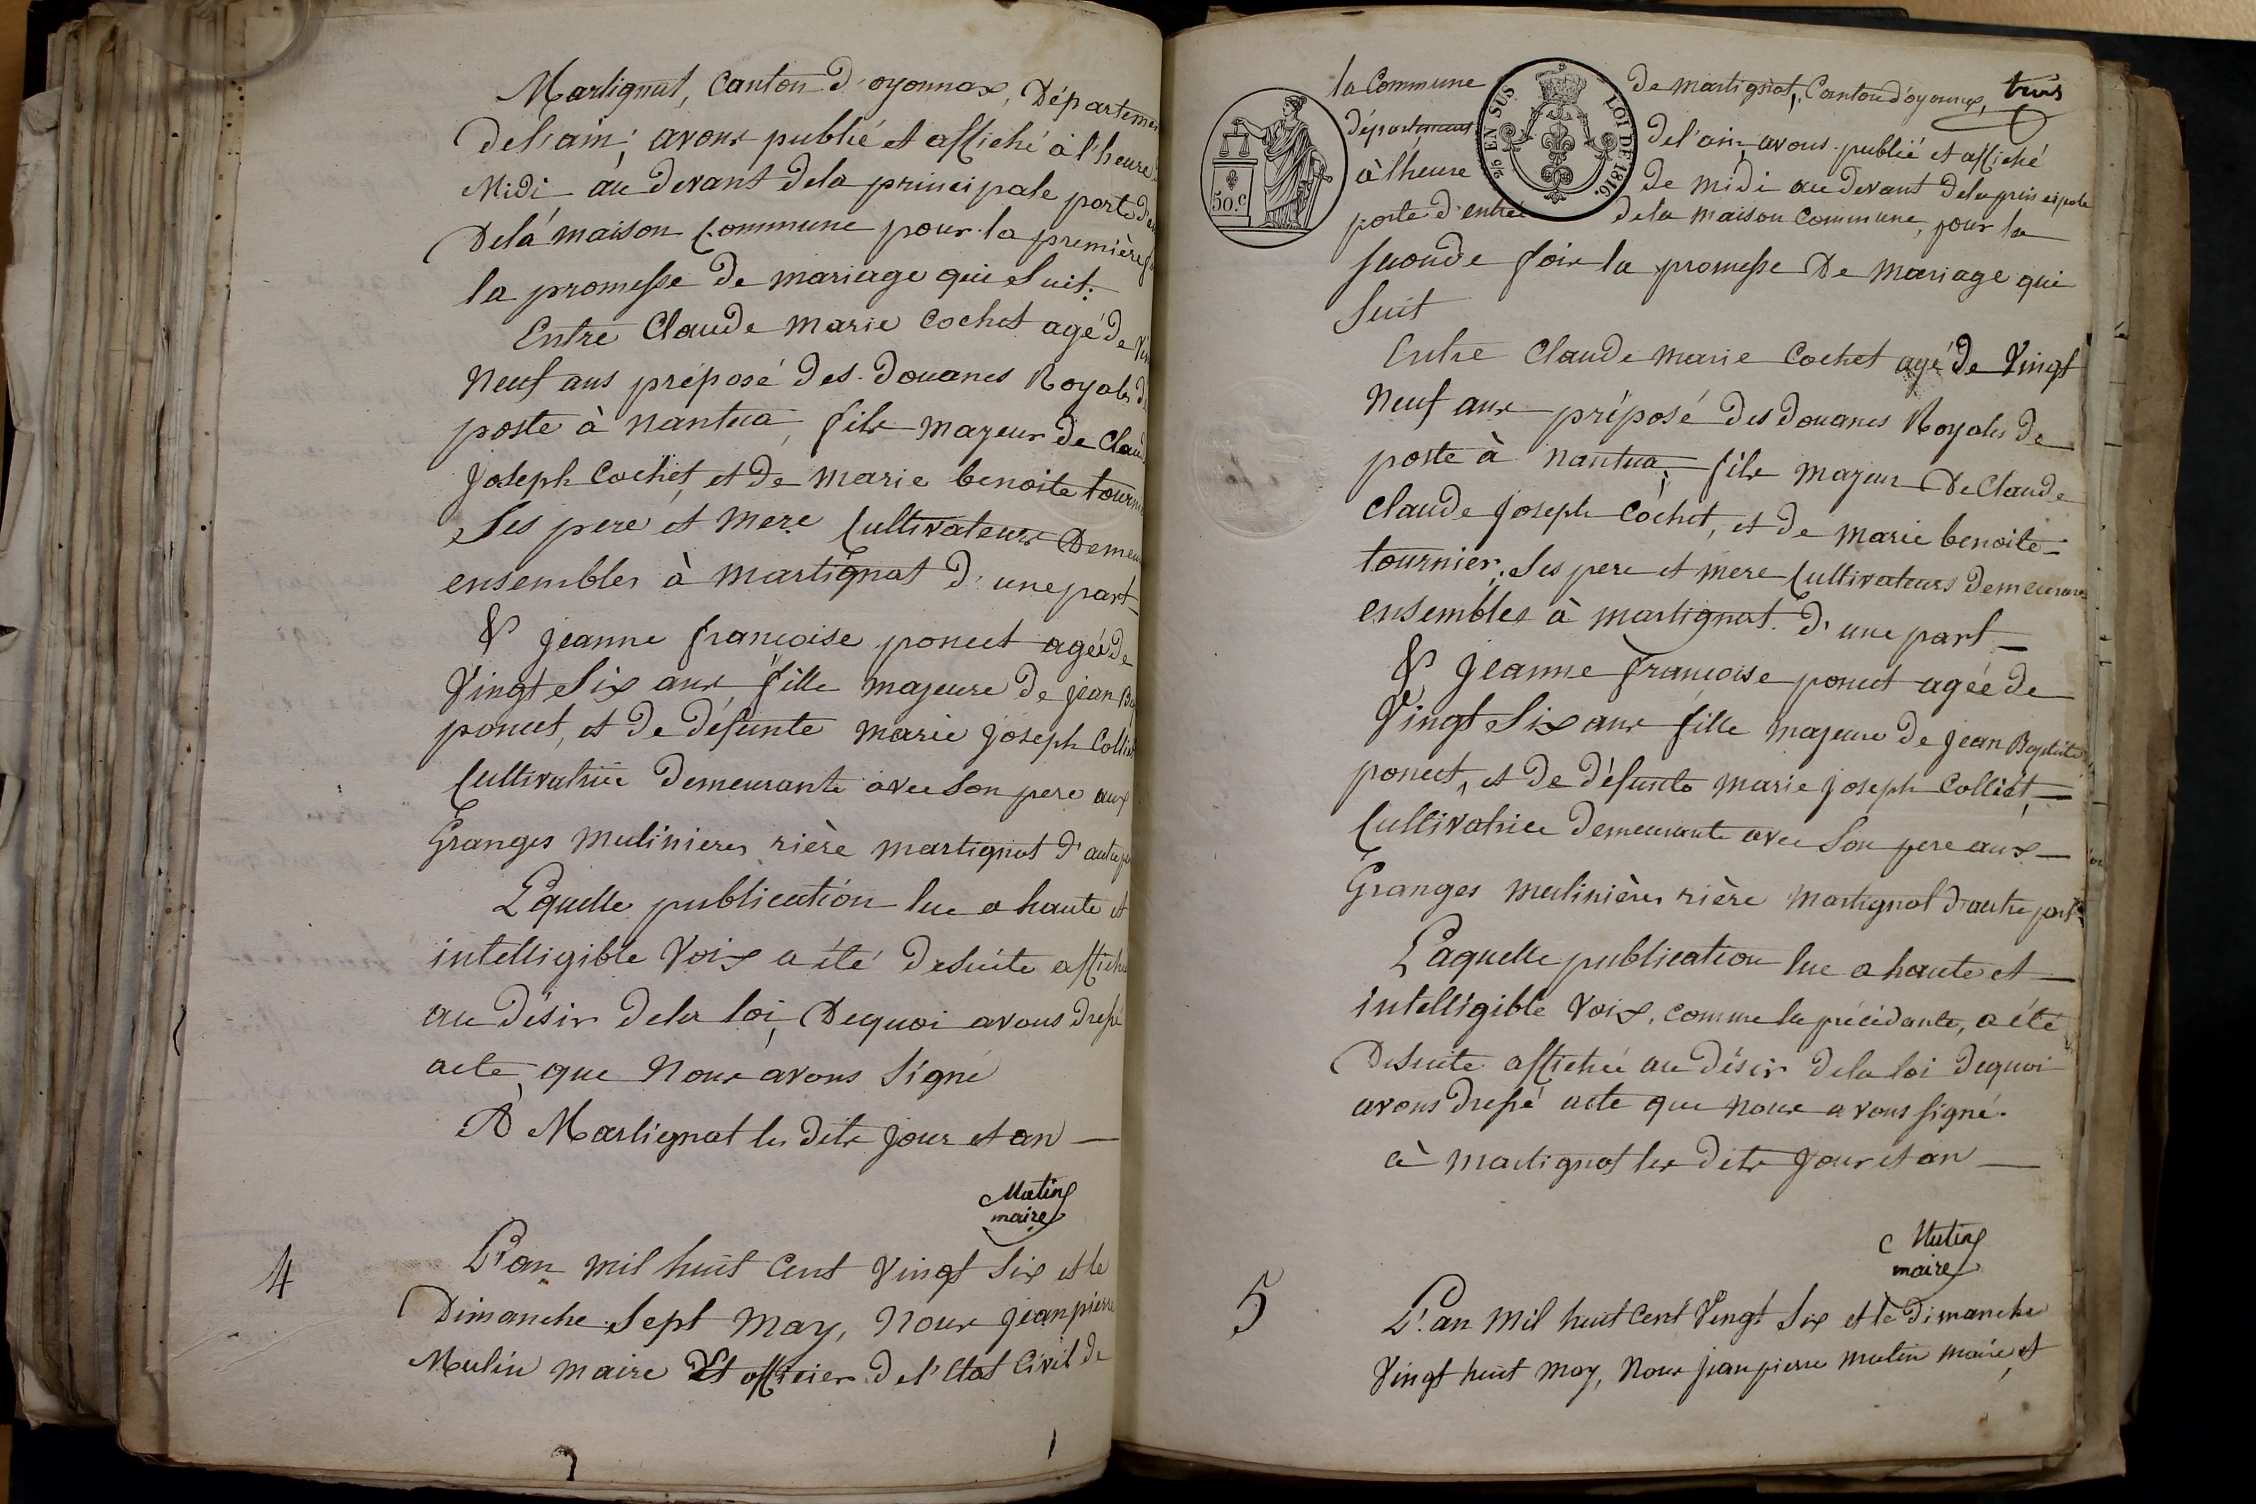 Martignat, Canton d'oyonnax, Département
de l'ain; avons publié et affiché à l'heure
Midi au devant dela principale porte
Dela maison Commune pour la première
la promesse de mariage qui Suit:
Entre Claude Marie Cochet agé de
Neuf ans préposé des douanes Royales
poste à nantua, fils mayeur de Claude
Joseph Cochet, et de marie benoite tournier
Ses pere et mere Cultivateurs
ensembles à Martignat d'une part
& jeanne françoise poncet agée de
Vingt Six ans, fille majeure de jean
poncet, et de défunte marie joseph Colliet
Cultivatrice demeurante avec Son pere aux
Granges mulinieres rière martignat d'autre
Laquelle publication lue a haute et
intelligible Voix a été desuite affichée
au désir dela loi, Dequoi avons dressé
acte que Nous avons Signé
A Martignat les dits jour et an
Mutin
maire
4
L'an mil huit Cent Vingt Six et le
Dimanche Sept may, Nous jean pierre
Mutin maire Et officier de l'Etat Civil de
la Commune de martignat, Canton d'oyonnax, trois
département de l'ain, avons publié et affiché
à l'heure de midi au devant dela principale
porte d'entrée dela maison Commune, pour la
50.C
25 EN SUS
LOI DE 1816.
seconde fois la promesse De mariage qui
Suit
Entre Claude marie Cochet agé de Vingt
Neuf ans préposé des douanes Royales de
poste à nantua, fils mayeur De Claude
Claude Joseph Cochet, et de marie benoite
tournier, Ses pere et mere Cultivateurs
ensembles à martignat d'une part
& jeanne françoise poncet agée de
Vingt Six ans fille majeure de jean Baptiste
poncet, et de défunte marie joseph Colliet,
Cultivatrice demeurante avec Son pere aux
Granges mulinières rière martignat d'autre part
Laquelle publication lue a haute et
intelligible Voix, comme la précédante, a été
Desuite affichée au désir dela loi dequoi
avons dressé acte que nous avons signé.
à martignat les dits jour et an
Mutin
maire
5
L'an mil huit Cent Vingt Six et le dimanche
Vingt huit may, Nous jean pierre mutin maire, et